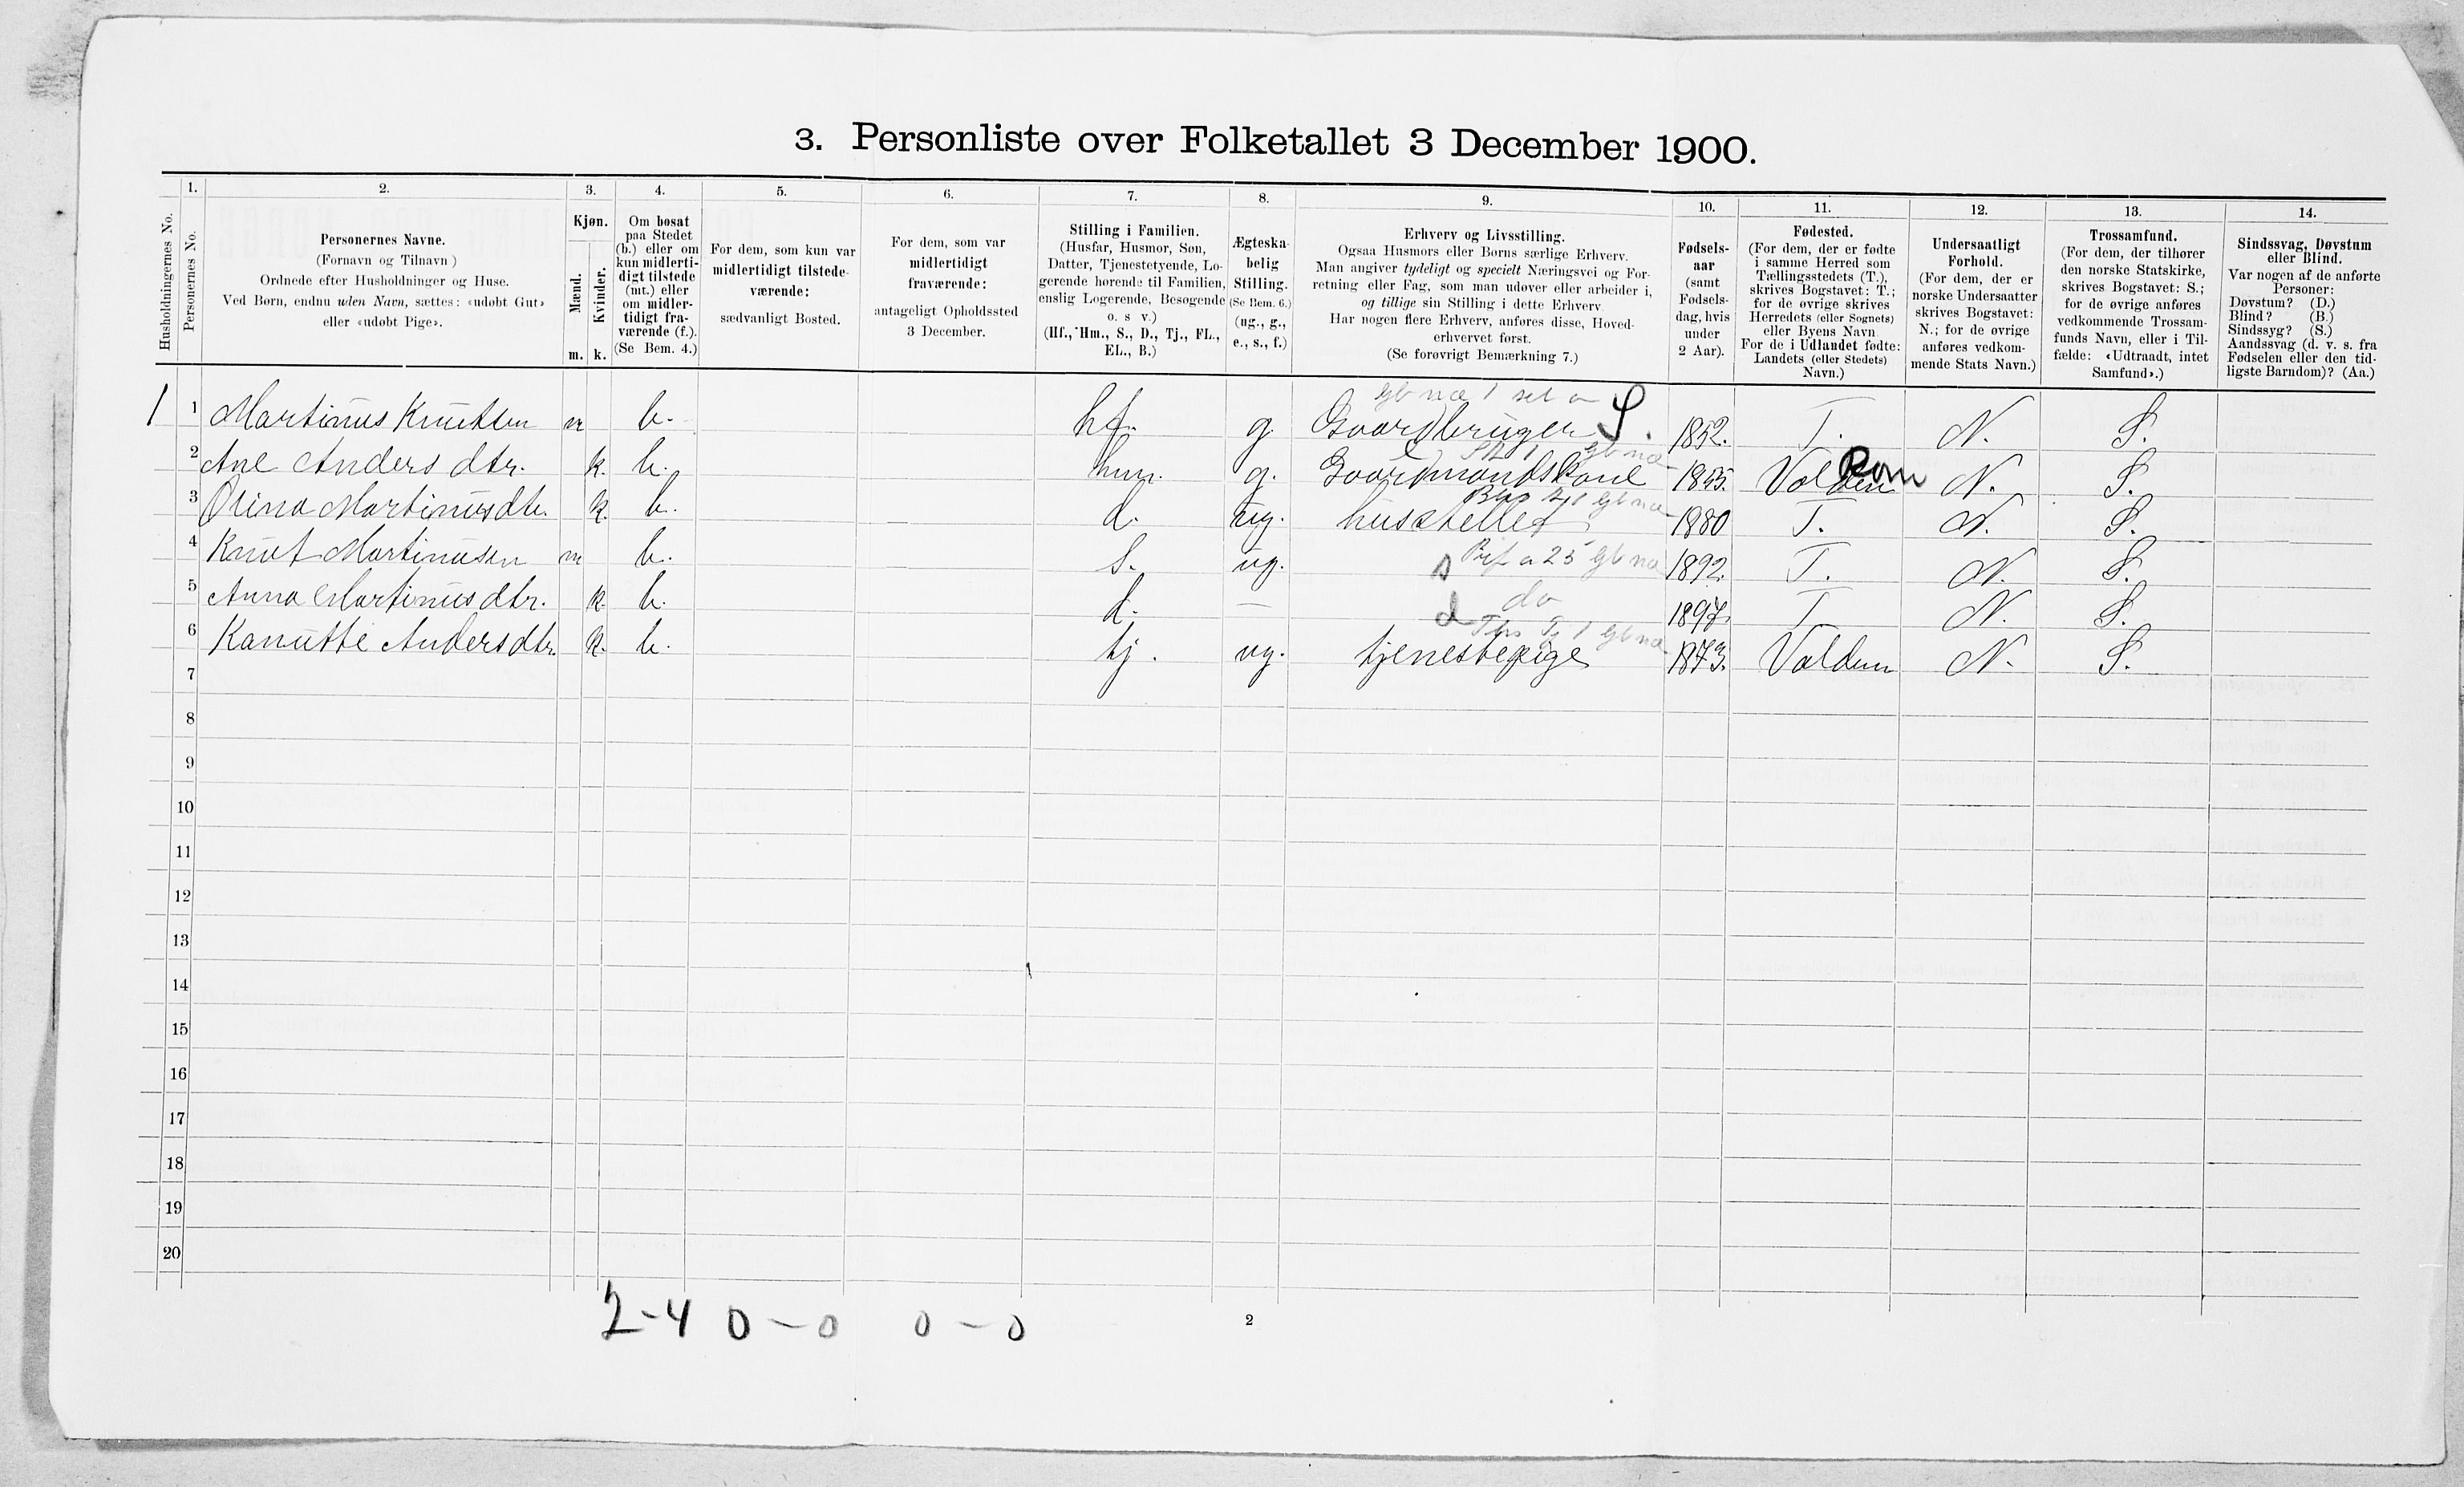 3. Personliste over Folketallet 3 December 1900.
1. 2. 3. 4. 5. 6. 7. 8. 9. 10. 11. 12. 13. 14.
Husholdningernes No.
Personernes No.
Personernes Navne.
(Fornavn og Tilnavn)
Ordnede efter Husholdninger og Huse.
Ved Børn, endnu uden Navn, sættes: «udøbt Gut»
eller «udøbt Pige».
Kjøn.
Mænd.
Kvinder.
m. k.
Om bosat
paa Stedet
(b.) eller om
kun midlerti-
digt tilstede
(mt.) eller
om midler-
tidigt fra-
værende (f.).
(Se Bem. 4.)
For dem, som kun var
midlertidigt tilstede-
værende:
sædvanligt Bosted.
For dem, som var
midlertidigt
fraværende:
antageligt Opholdssted
3 December.
Stilling i Familien.
(Husfar, Husmor, Søn,
Datter, Tjenestetyende, Lo-
gerende hørende til Familien,
enslig Logerende, Besøgende
o. s v.)
(Hf., Hm., S., D., Tj., FL.,
EL., B.)
Ægteska-
belig
Stilling.
(Se Bem. 6.)
(ug., g.,
e., s., f.)
Erhverv og Livsstilling.
Ogsaa Husmors eller Børns særlige Erhverv.
Man angiver tydeligt og specielt Næringsvei og For-
retning eller Fag, som man udøver eller arbeider i,
og tillige sin Stilling i dette Erhverv.
Har nogen flere Erhverv, anføres disse, Hoved-
erhvervet først.
(Se forøvrigt Bemærkning 7.)
Fødsels-
aar
(samt
Fødsels-
dag, hvis
under
2 Aar).
Fødested.
(For dem, der er fødte
i samme Herred som
Tællingsstedets (T.),
skrives Bogstavet: T.;
for de øvrige skrives
Herredets (eller Sognets)
eller Byens Navn.
For de i Udlandet fødte:
Landets (eller Stedets)
Navn.)
Undersaatligt
Forhold.
(For dem, der er
norske Undersaatter
skrives Bogstavet:
N.; for de øvrige
anføres vedkom-
mende Stats Navn.)
Trossamfund.
(For dem, der tilhører
den norske Statskirke,
skrives Bogstavet: S.;
for de øvrige anføres
vedkommende Trossam-
funds Navn, eller i Til-
fælde: «Udtraadt, intet
Samfund».)
Sindssvag, Døvstum
eller Blind.
Var nogen af de anførte
Personer:
Døvstum? (D.)
Blind? (B.)
Sindssyg? (S.)
Aandssvag (d. v. s. fra
Fødselen eller den tid-
ligste Barndom)? (Aa.)
1 1 Martinus Knutsen m b. hf. g Gaardbruger S. 1852. T. N. S.
2 Ane Anders dtr. k. b. hm. g. Gaardmandskone 1855. Volden Rom N. S.
3 Olina Martinusdtr. k. b. d. ug. husstellet 1880 T. N. S.
4 Knut Martinusen m b. s. ug. s 1892. T. N. S.
5 Anna Martinusdtr. k. b. d. — d do 1897. T. N. S.
6 Kanutte Andersdtr. k. b. tj. ug. tjenestepige 1873. Volden N. S.
7
8
9
10
11
12
13
14
15
16
17
18
19
20
2-4 0-0 0-0
2